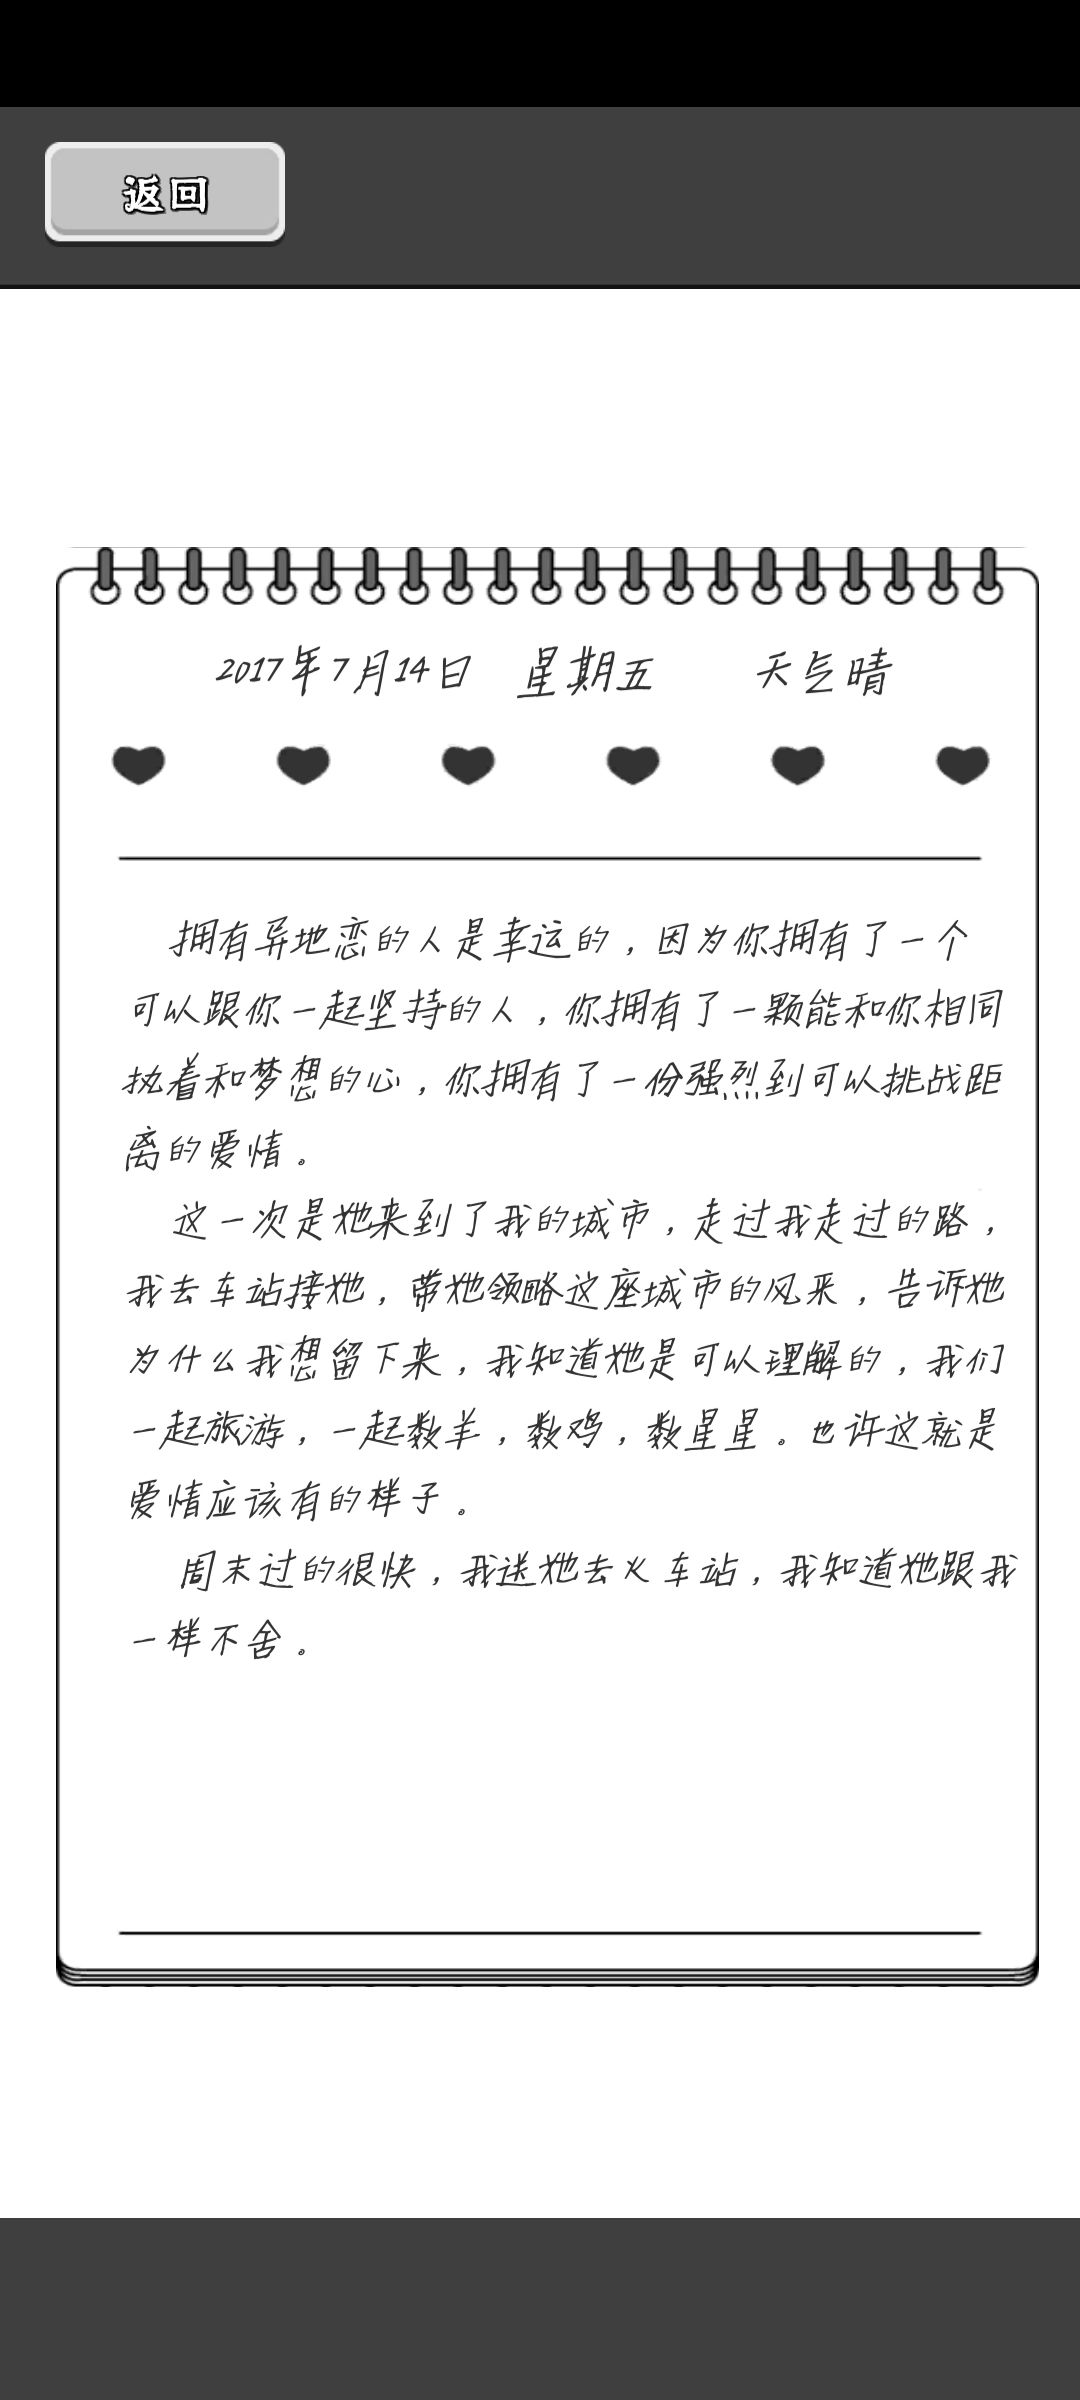 返回
2017年7月14日 星期五 天气晴
拥有异地恋的人是幸运的，因为你拥有了一个
可以跟你一起坚持的人，你拥有了一颗能和你相同
执着和梦想的心，你拥有了一份强烈到可以挑战距
离的爱情。
这一次是她来到了我的城市，走过我走过的路，
我去车站接她，带她领略这座城市的风采，告诉她
为什么我想留下来，我知道她是可以理解的，我们
一起旅游，一起数羊，数鸡，数星星。也许这就是
爱情应该有的样子。
周末过的很快，我送她去火车站，我知道她跟我
一样不舍。